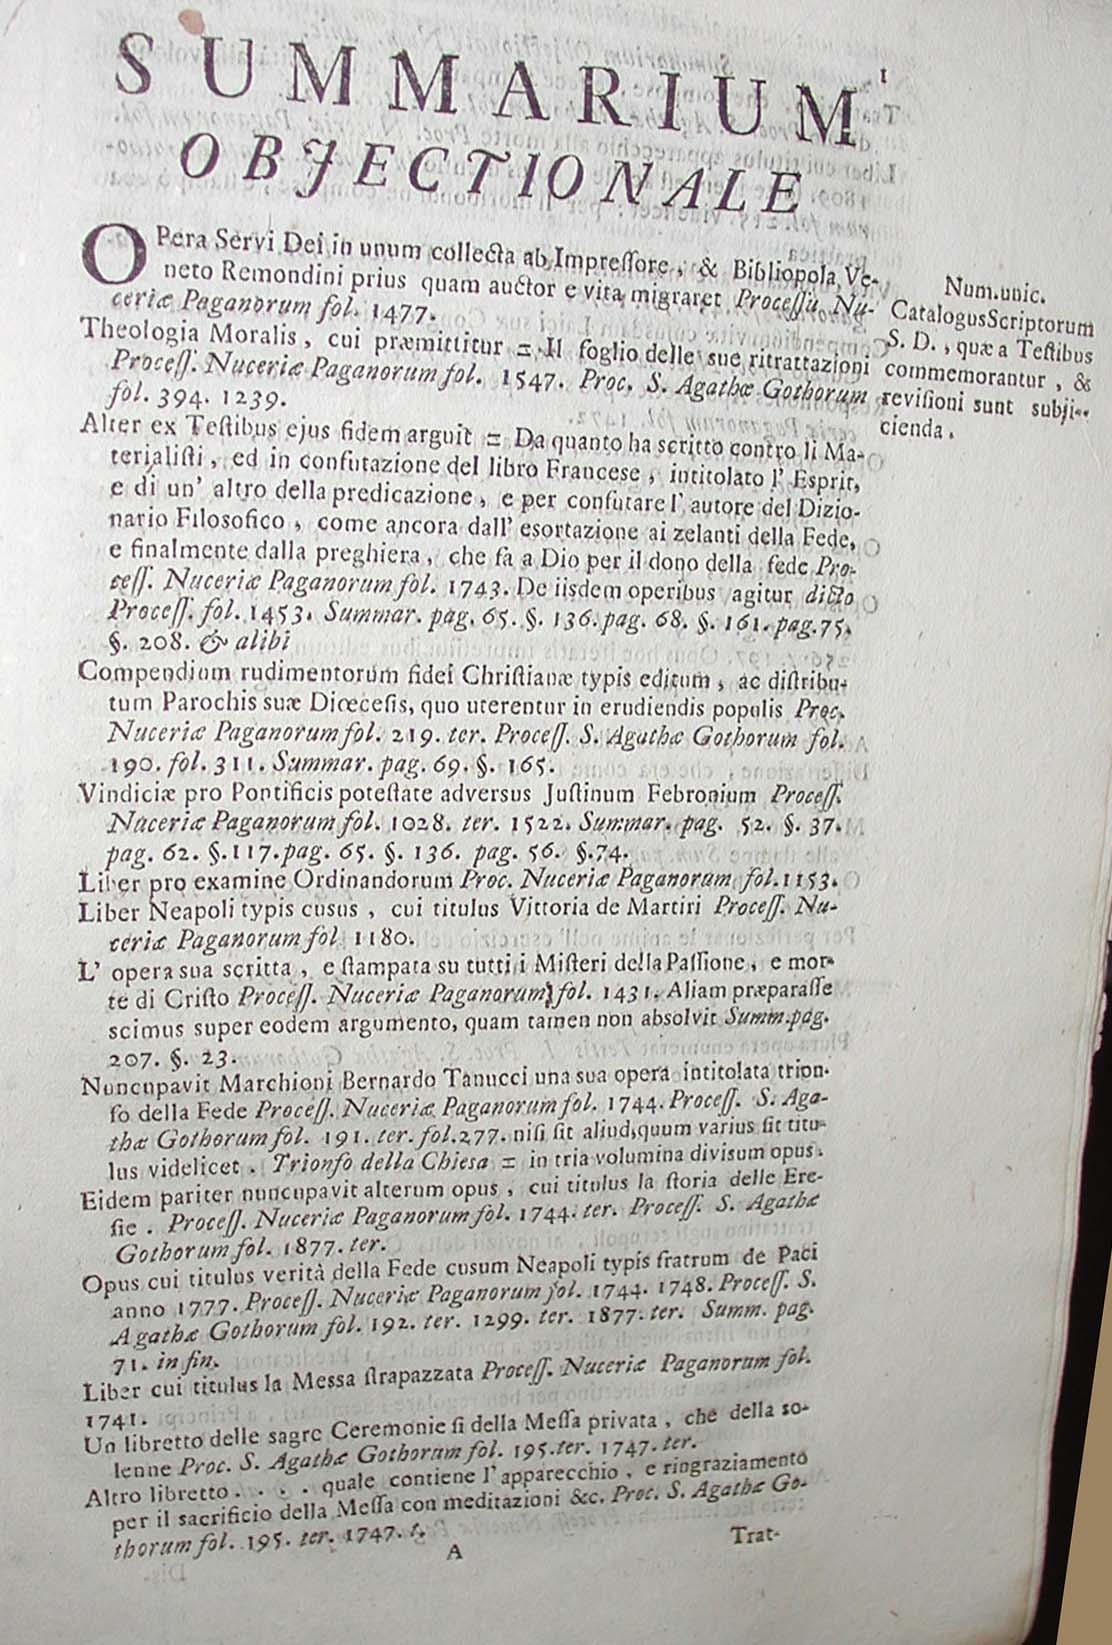 1
SUMMARIUM
OBJECTIONALE
OPera Servi Dei in unum collecta ab Impressore, & Bibliopola Ve-
neto Remondini prius quam auctor e vita migraret Processu Nu-
ceriæ Paganorum fol. 1477.
Num. unic.
Catalogus Scriptorum
S. D., quæ a Testibus
commemorantur, &
revisioni sunt subji-
cienda.
Theologia Moralis, cui præmittitur = Il foglio delle sue ritrattazioni
Process. Nuceriæ Paganorum fol. 1547. Proc. S. Agathæ Gothorum
fol. 394. 1239.
Alter ex Testibus ejus fidem arguit = Da quanto ha scritto contro li Ma-
terialisti, ed in confutazione del libro Francese, intitolato l' Esprit,
e di un' altro della predicazione, e per confutare l' autore del Dizio-
nario Filosofico, come ancora dall' esortazione ai zelanti della Fede,
e finalmente dalla preghiera, che fa a Dio per il dono della fede Pro-
cess. Nuceriæ Paganorum fol. 1743. De iisdem operibus agitur dicto
Process. fol. 1453. Summar. pag. 65. §. 136. pag. 68. §. 161. pag. 75.
§. 208. & alibi
Compendium rudimentorum fidei Christianæ typis editum, ac distribu-
tum Parochis suæ Diœcesis, quo uterentur in erudiendis populis Proc.
Nuceriæ Paganorum fol. 219. ter. Process. S. Agathæ Gothorum fol.
190. fol. 311. Summar. pag. 69. §. 165.
Vindiciæ pro Pontificis potestate adversus Justinum Febronium Process.
Nuceriæ Paganorum fol. 1028. ter. 1522. Summar. pag. 52. §. 37.
pag. 62. §. 117. pag. 65. §. 136. pag. 56. §. 74.
Liber pro examine Ordinandorum Proc. Nuceriæ Paganorum fol. 1153.
Liber Neapoli typis cusus, cui titulus Vittoria de Martiri Process. Nu-
ceriæ Paganorum fol 1180.
L' opera sua scritta, e stampata su tutti i Misteri della Passione, e mor-
te di Cristo Process. Nuceriæ Paganorum fol. 1431. Aliam præparasse
scimus super eodem argumento, quam tamen non absolvit Summ. pag.
207. §. 23.
Nuncupavit Marchioni Bernardo Tanucci una sua opera intitolata trion-
fo della Fede Process. Nuceriæ Paganorum fol. 1744. Process. S. Aga-
thæ Gothorum fol. 191. ter. fol. 277. nisi sit aliud, quum varius sit titu-
lus videlicet. Trionfo della Chiesa = in tria volumina divisum opus.
Eidem pariter nuncupavit alterum opus, cui titulus la storia delle Ere-
sie. Process. Nuceriæ Paganorum fol. 1744. ter. Process. S. Agathæ
Gothorum fol. 1877. ter.
Opus cui titulus verità della Fede cusum Neapoli typis fratrum de Paci
anno 1777. Process. Nuceriæ Paganorum fol. 1744. 1748. Process. S.
Agathæ Gothorum fol. 192. ter. 1299. ter. 1877. ter. Summ. pag.
71. in fin.
Liber cui titulus la Messa strapazzata Process. Nuceriæ Paganorum fol.
1741.
Un libretto delle sagre Ceremonie si della Messa privata, che della so-
lenne Proc. S. Agathæ Gothorum fol. 195. ter. 1747. ter.
Altro libretto . . . . quale contiene l' apparecchio, e ringraziamento
per il sacrificio della Messa con meditazioni &c. Proc. S. Agathæ Go-
thorum fol. 195. ter. 1747. t.
A
Trat-